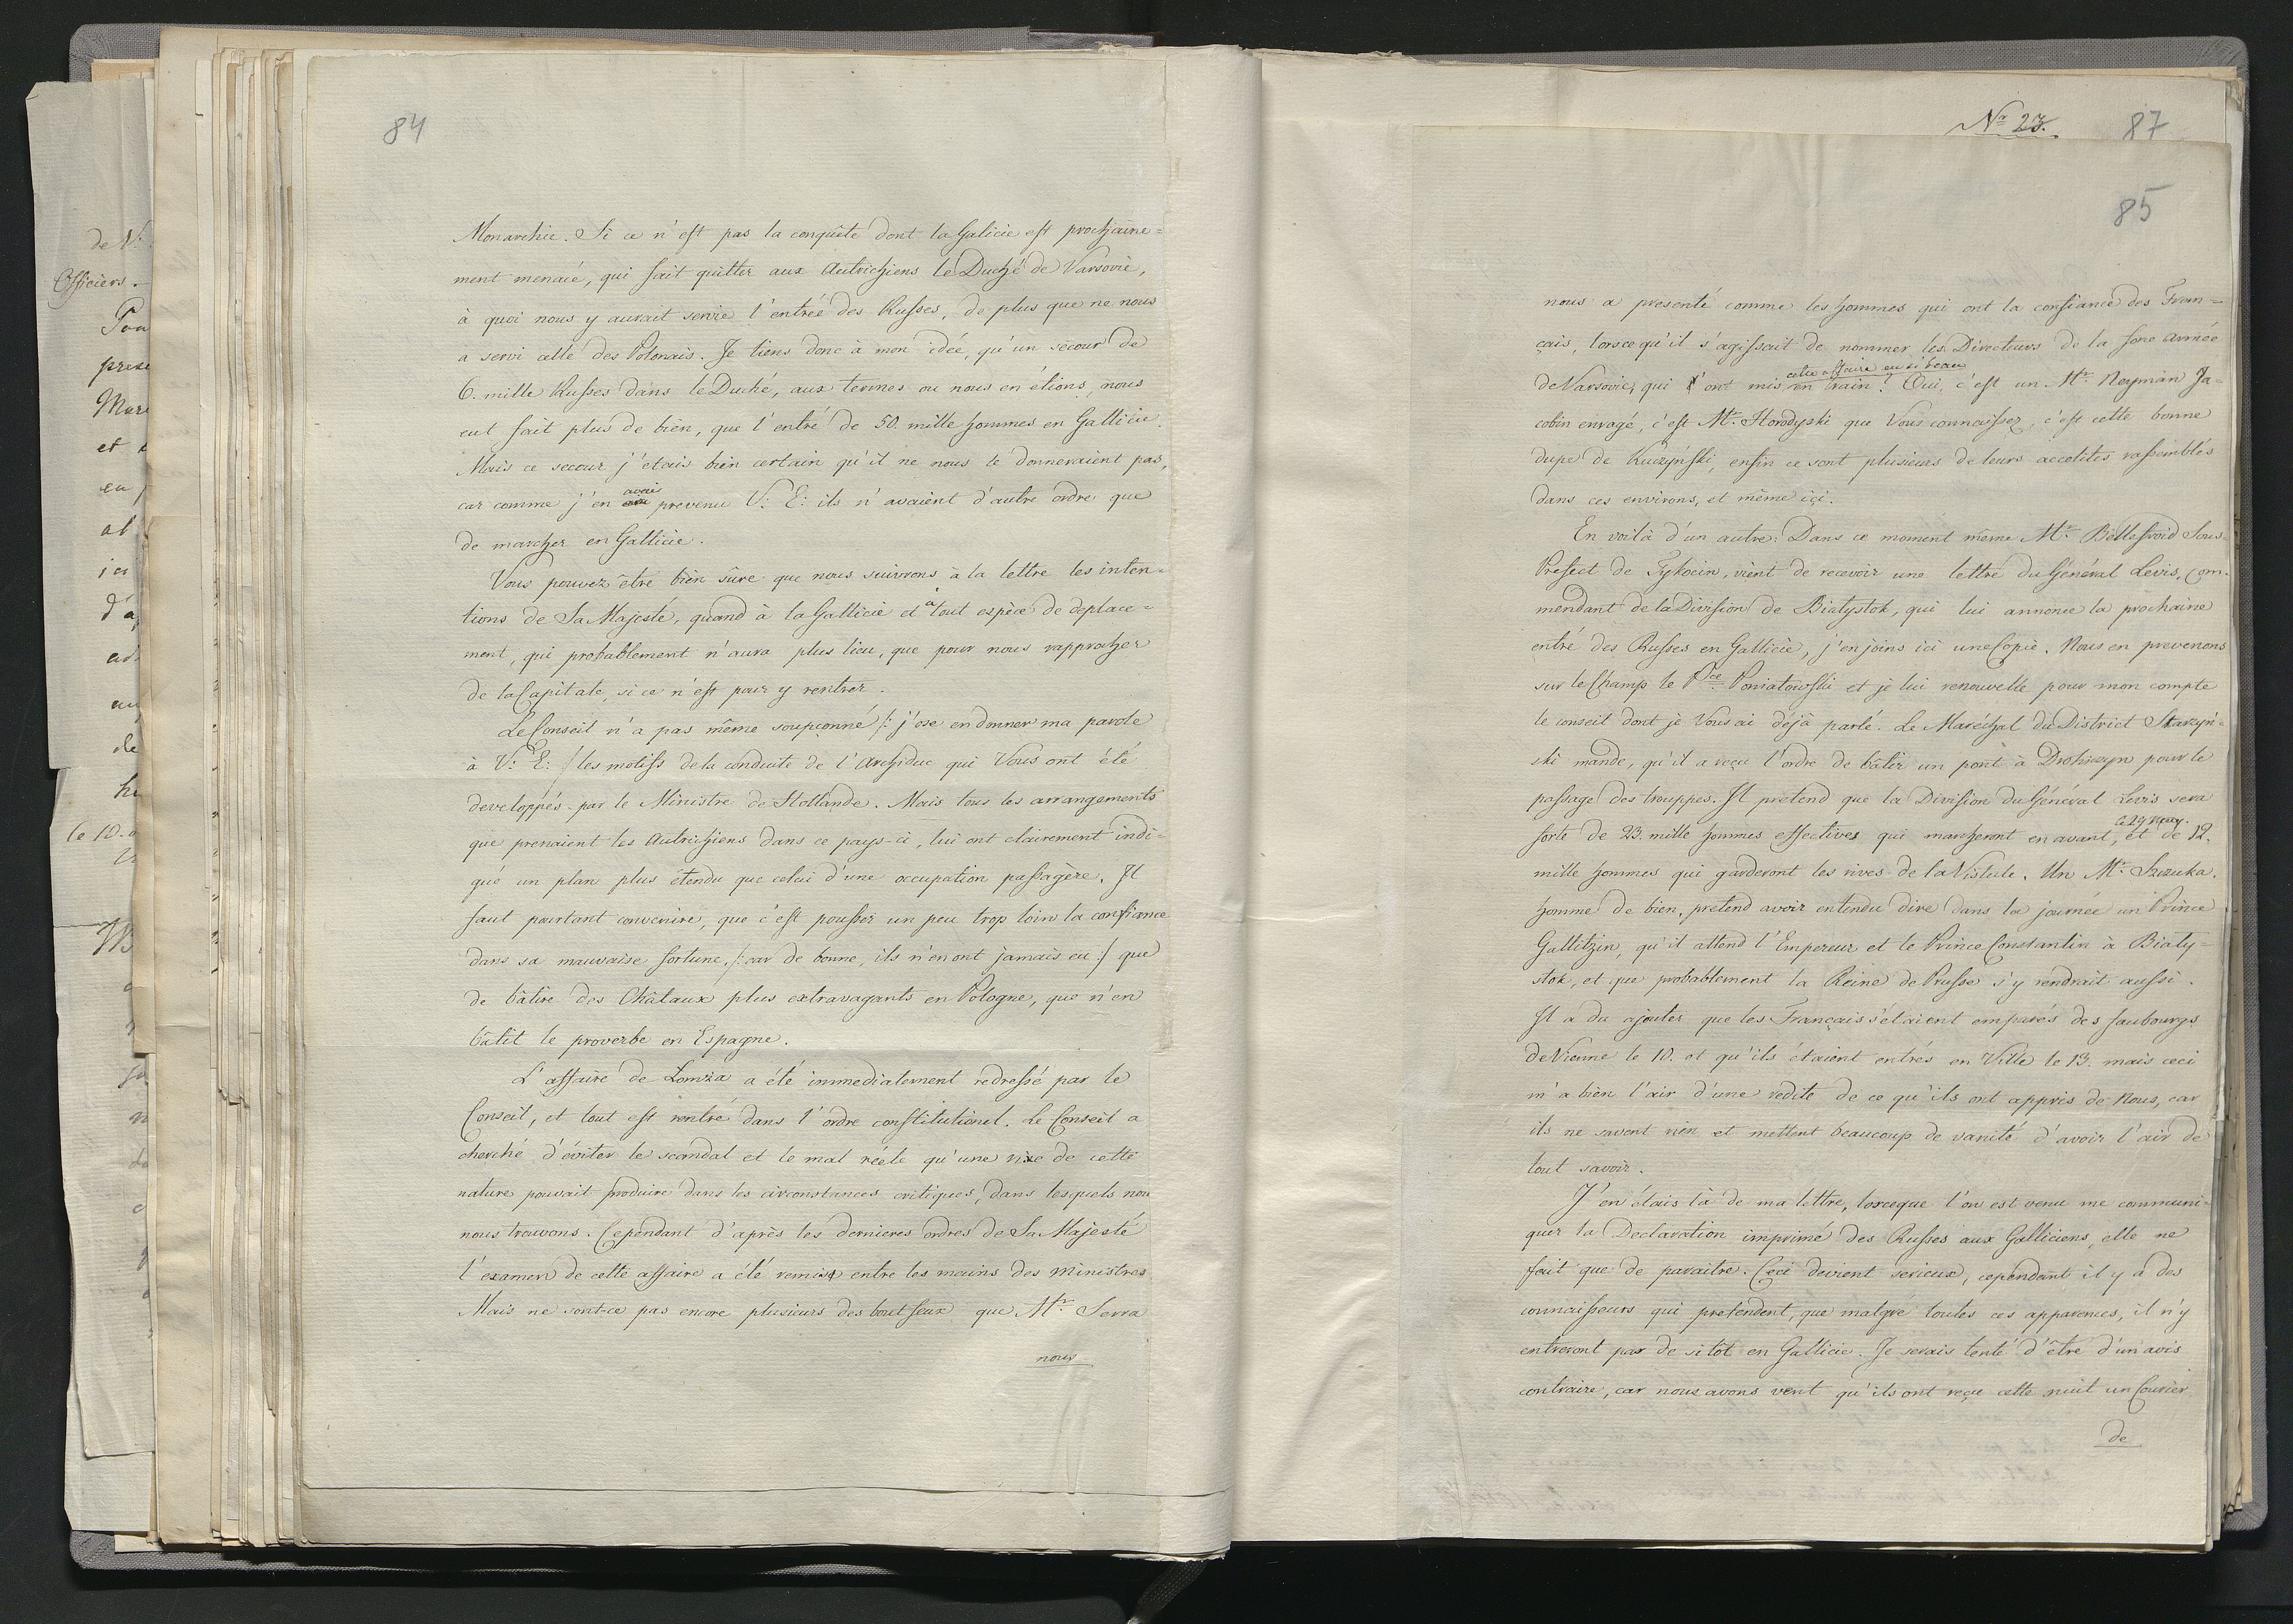 84
Monarchie. Si ce n'est pas la conquête dont la Galicie est prochaine=
ment menacé, qui fait quitter aux Autrichiens le Duché de Varsovie,
à quoi nous y aurait servie l'entrée des Russes, de plus que ne nous
a servi celle des Polonais. Je tiens donc à mon idée, qu'un secour de
6. mille Russes dans le Duché, aux termes ou nous en étions, nous
eut fait plus de bien, que l'entré de 50. mille hommes en Gallicie.
Mais ce secour j'etais bien certain qu'il ne nous le donneraient pas,
car comme j'en avai prevenu V: E: ils n'avaient d'autre ordre que
de marcher en Gallicie.
Vous pouvez être bien sûre que nous suivrons à la lettre les inten=
tions de Sa Majesté, quand à la Gallicie et à tout espèce de deplace=
ment, qui probablement n'aura plus lieu, que pour nous rapprocher
de la Capitale, si ce n'est pour y rentrer.
Le Conseil n'a pas même soupçonné /: j'ose en donner ma parole
à V: E: / les motifs de la conduite de l'Archiduc qui Vous ont été
developpés par le Ministre de Hollande. Mais tous les arrangements
que prenaient les Autrichiens dans ce pays-ci, lui ont clairement indi=
qué un plan plus étendu que celui d'une occupation passagère. Il
faut pourtant convenire, que c'est pousser un peu trop loin la confiance
dans sa mauvaise fortune, /: car de bonne, ils n'en ont jamais eu :/ que
de bâtire des Châtaux plus extravagants en Pologne, que n'en
bâtit le proverbe en Espagne.
L'affaire de Lomza a été immediatement redressé par le
Conseil, et tout est rentré dans l'ordre constitutionel. Le Conseil a
cherché d'éviter le scandal et le mal réele qu'une rixe de cette
nature pouvait produire dans les circonstances critiques, dans lesquels nou
nous trouvons. Cependant d'après les dernieres ordres de Sa Majesté
l'examen de cette affaire a été remis entre les mains des Ministres
Mais ne sont-ce pas encore plusieurs des boutfeux que Mr. Serra
nous
Nr. 23.
87
85
nous a presenté comme les hommes qui ont la confiance des Fran=
çais, lorsce qu'il s'agissait de nommer les Directeurs de la fone année
cette affaire en si beau
de Varsovie, qui l'ont mis en train? Oui, c'est un Mr. Neyman Ja=
cobin enragé, c'est Mr. Horodyski que Vous connaissez, c'est cette bonne
dupe de Kuczyński, enfin ce sont plusieurs de leurs accolites rassemblés
dans ces environs, et même içi.
En voilà d'un autre: Dans ce moment même Mr. Bellefroid Sous-
Prefect de Tykocin, vient de recevoir une lettre du Général Levis, Com-
mendant de la Division de Białystok, qui lui annonce la prochaine
entré des Russes en Gallicie, j'en joins ici une Copie. Nous en prevenons
sur le Champ le Pce. Poniatowski et je lui renouvelle pour mon compte
le conseil dont je Vous ai déjà parlé. Le Maréchal du District Starzyń=
ski mande, qu'il a reçu l'ordre de bâtir un pont à Drohiczyn pour le
passage des trouppes. Il pretend que la Division du Général Levis sera
forte de 23. mille hommes effectives qui marcheront en avant, et de 12.
mille hommes qui garderont les rives de la Vistule. Un Mr. Szczuka.
homme de bien, pretend avoir entendu dire dans la journée un Prince
Gallitzin, qu'il attend l'Empereur et le Prince Constantin à Biały=
stok, et que probablement la Reine de Prusse s'y rendrait aussi.
Il a du ajouter que les Français s'étaient emparés des faubourgs
de Vienne le 10. et qu'ils étaient entrés en Ville le 13. mais ceci
m'a bien l'air d'une redite de ce qu'ils ont appris de Nous, car
ils ne savent rien et mettent beaucoup de vanité d'avoir l'air de
tout savoir.
J'en étais là de ma lettre, lorceque l'on est venu me communi=
quer la Declaration imprimé des Russes aux Galliciens, elle ne
fait que de paraitre. Ceci devient serieux, cependant il y a des
connaisseurs qui pretendent, que malgré toutes ces apparences, il n'y
entreront pas de sitôt en Gallicie. Je serais tenté d'être d'un avis
contraire, car nous avons vent qu'ils ont reçu cette nuit un Courier
de